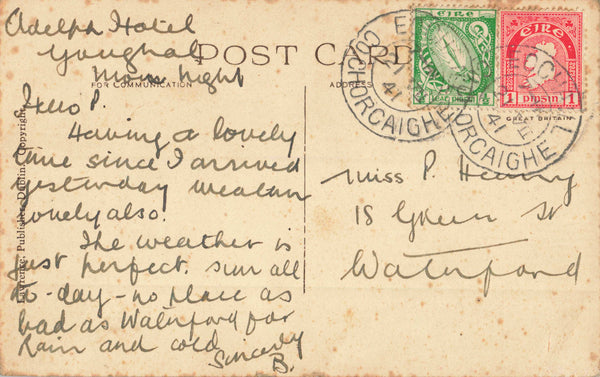 Adelphi Hotel
Youghal
Mon. night
POST CARD
FOR COMMUNICATION
ADDRESS
Dear P.
Having a lovely
time since I arrived
yesterday weather
lovely also.
The weather is
just perfect. sun all
to-day - no place as
bad as Waterford for
Rain and cold
Sincerely
B.
Lawrence, Publisher, Dublin, Copyright
éire
éire
1 pinsin 1
GREAT BRITAIN
EOCHAILL
CO CHORCAIGHE
41
CO CHORCAIGHE
41
Miss P. Henry
18 Green St
Waterford